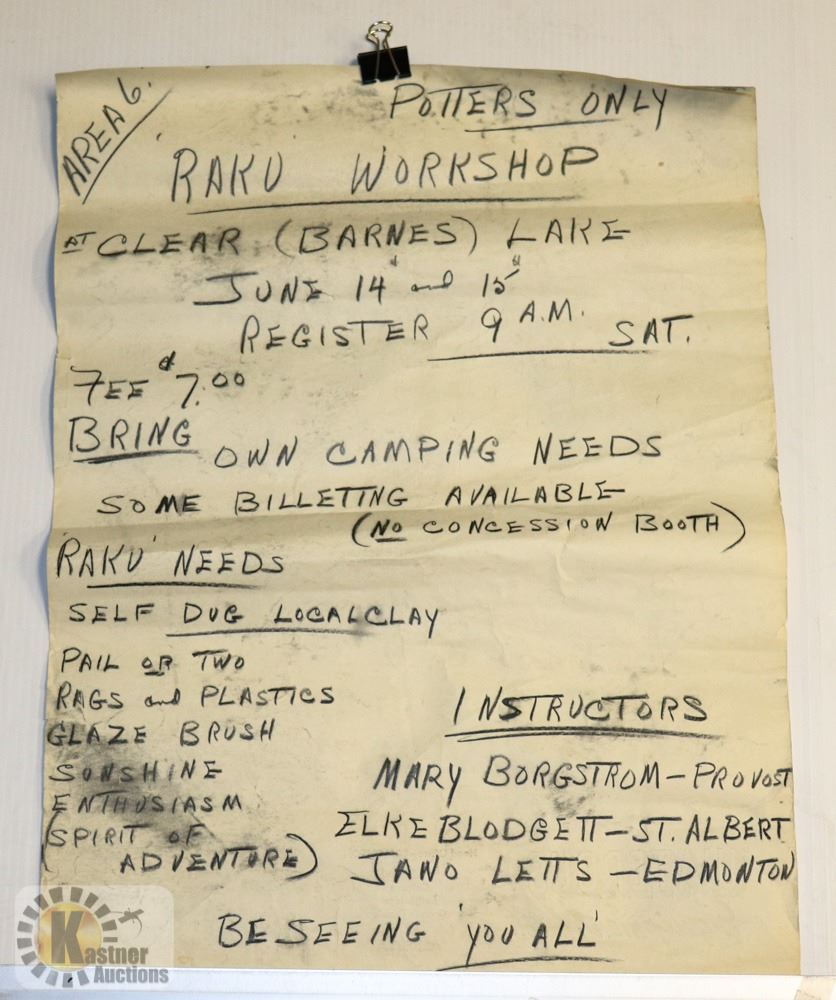 AREA 6.
POTTERS ONLY
'RAKU WORKSHOP
AT CLEAR (BARNES) LAKE
JUNE 14" and 15"
REGISTER 9 A.M. SAT.
FEE $7.00
BRING OWN CAMPING NEEDS
SOME BILLETING AVAILABLE
(NO CONCESSION BOOTH)
'RAKU' NEEDS
SELF DUG LOCAL CLAY
PAIL OR TWO
RAGS and PLASTICS
GLAZE BRUSH
SUNSHINE
ENTHUSIASM
(SPIRIT OF
ADVENTURE)
INSTRUCTORS
MARY BORGSTROM - PROVOST
ELKE BLODGETT - ST. ALBERT
JANO LETTS - EDMONTON
BE SEEING 'YOU ALL'
Kastner
Auctions